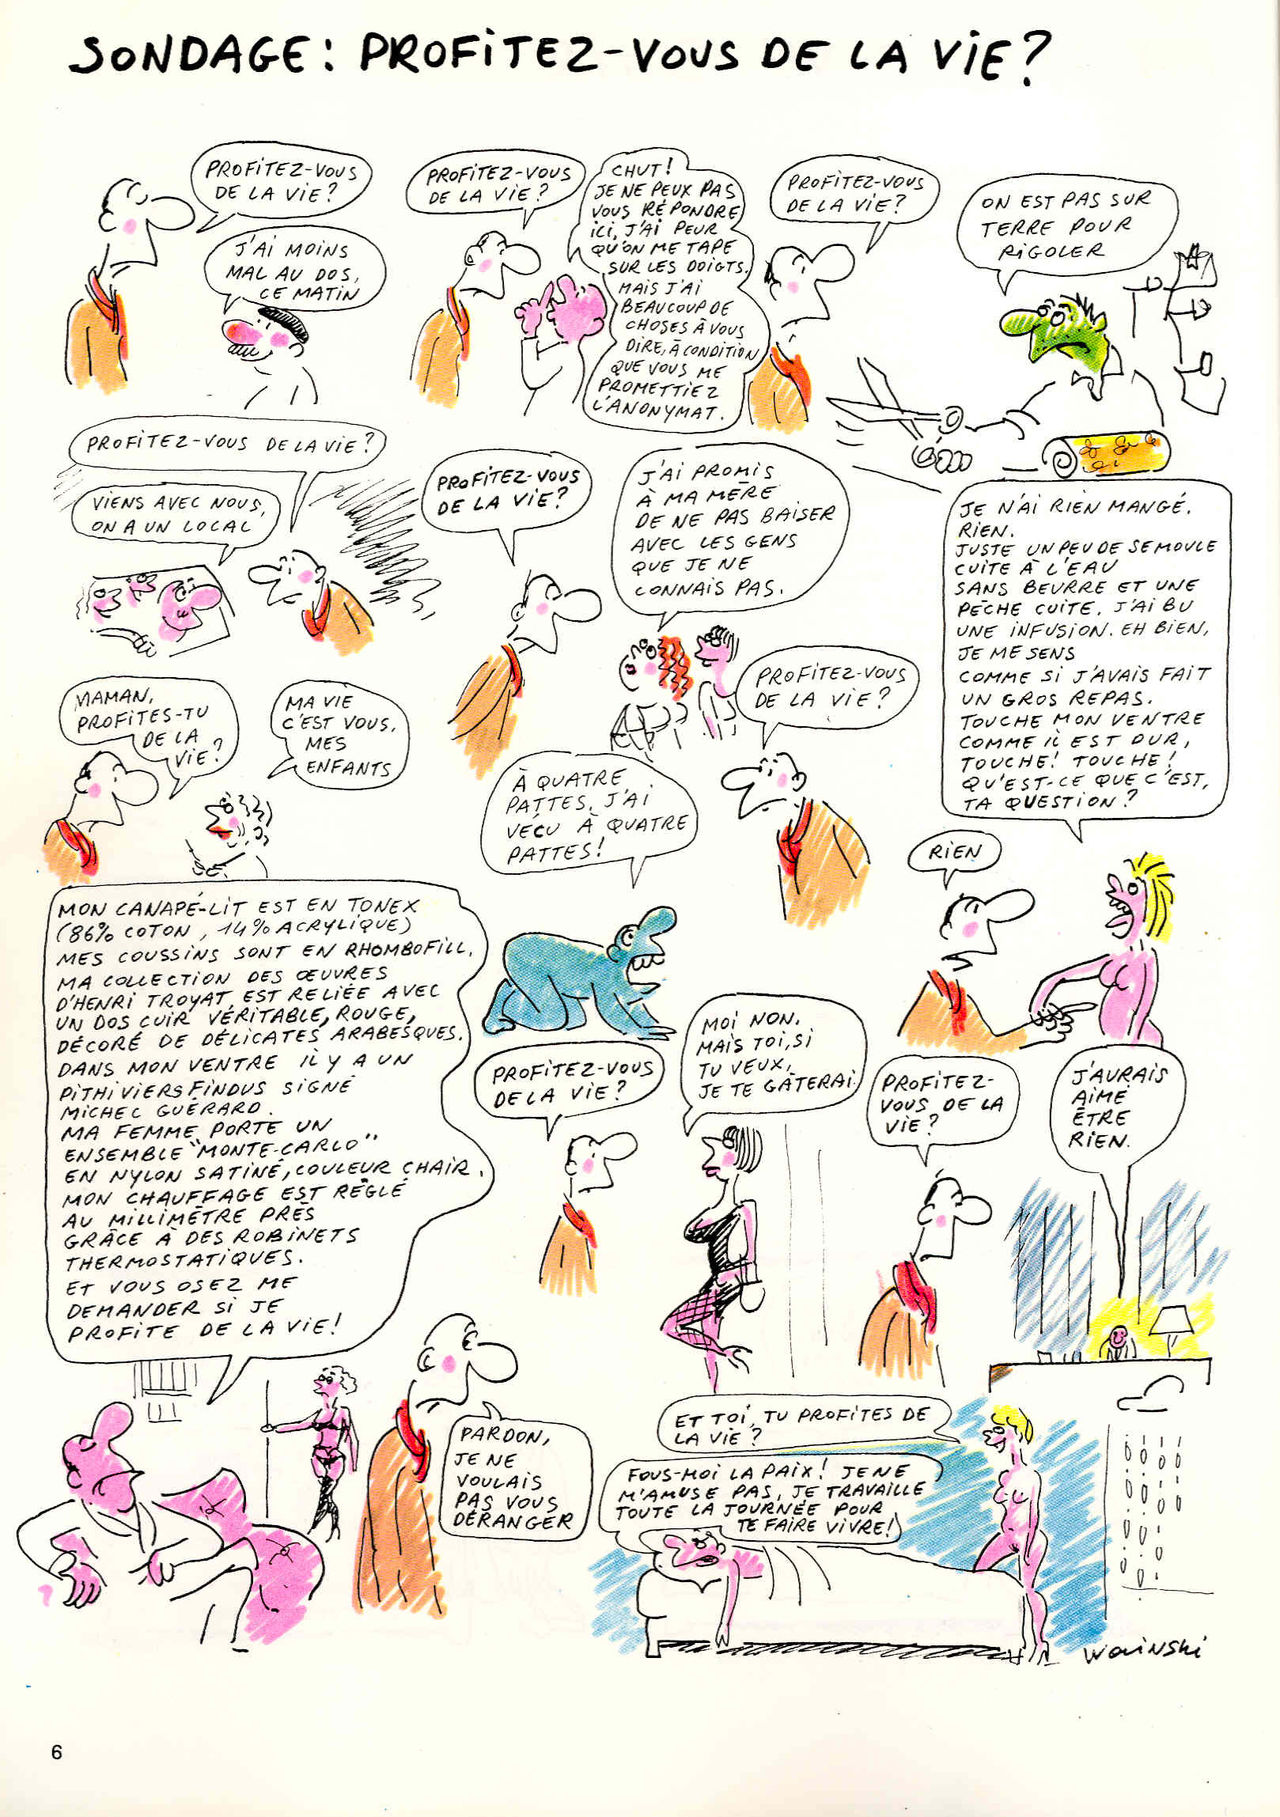 SONDAGE : PROFITEZ-VOUS DE LA VIE ?
PROFITEZ-VOUS
DE LA VIE ?
J'AI MOINS
MAL AU DOS,
CE MATIN
PROFITEZ-VOUS
DE LA VIE ?
CHUT !
JE NE PEUX PAS
VOUS RÉPONDRE
ICI, J'AI PEUR
QU'ON ME TAPE
SUR LES DOIGTS.
MAIS J'AI
BEAUCOUP DE
CHOSES À VOUS
DIRE, À CONDITION
QUE VOUS ME
PROMETTIEZ
L'ANONYMAT.
PROFITEZ-VOUS
DE LA VIE ?
ON EST PAS SUR
TERRE POUR
RIGOLER
PROFITEZ-VOUS DE LA VIE ?
VIENS AVEC NOUS,
ON A UN LOCAL
PROFITEZ-VOUS
DE LA VIE ?
J'AI PROMIS
À MA MÈRE
DE NE PAS BAISER
AVEC LES GENS
QUE JE NE
CONNAIS PAS.
MAMAN,
PROFITES-TU
DE LA
VIE ?
MA VIE
C'EST VOUS,
MES
ENFANTS
PROFITEZ-VOUS
DE LA VIE ?
À QUATRE
PATTES, J'AI
VÉCU À QUATRE
PATTES !
JE N'AI RIEN MANGÉ.
RIEN.
JUSTE UN PEU DE SEMOULE
CUITE À L'EAU
SANS BEURRE ET UNE
PÊCHE CUITE. J'AI BU
UNE INFUSION. EH BIEN,
JE ME SENS
COMME SI J'AVAIS FAIT
UN GROS REPAS.
TOUCHE MON VENTRE
COMME IL EST DUR,
TOUCHE ! TOUCHE !
QU'EST-CE QUE C'EST,
TA QUESTION ?
RIEN
MON CANAPÉ-LIT EST EN TONEX
(86% COTON, 14% ACRYLIQUE)
MES COUSSINS SONT EN RHOMBOFILL.
MA COLLECTION DES ŒUVRES
D'HENRI TROYAT EST RELIÉE AVEC
UN DOS CUIR VÉRITABLE, ROUGE,
DÉCORÉ DE DÉLICATES ARABESQUES.
DANS MON VENTRE IL Y A UN
PITHIVIERS FINDUS SIGNÉ
MICHEL GUÉRARD.
MA FEMME PORTE UN
ENSEMBLE "MONTE-CARLO"
EN NYLON SATINÉ, COULEUR CHAIR.
MON CHAUFFAGE EST RÉGLÉ
AU MILLIMÈTRE PRÈS
GRÂCE À DES ROBINETS
THERMOSTATIQUES.
ET VOUS OSEZ ME
DEMANDER SI JE
PROFITE DE LA VIE !
PARDON,
JE NE
VOULAIS
PAS VOUS
DÉRANGER
PROFITEZ-VOUS
DE LA VIE ?
MOI NON.
MAIS TOI, SI
TU VEUX,
JE TE GÂTERAI
PROFITEZ-
VOUS DE LA
VIE ?
J'AURAIS
AIMÉ
ÊTRE
RIEN.
ET TOI, TU PROFITES DE
LA VIE ?
FOUS-MOI LA PAIX ! JE NE
M'AMUSE PAS, JE TRAVAILLE
TOUTE LA JOURNÉE POUR
TE FAIRE VIVRE !
WOLINSKI
6